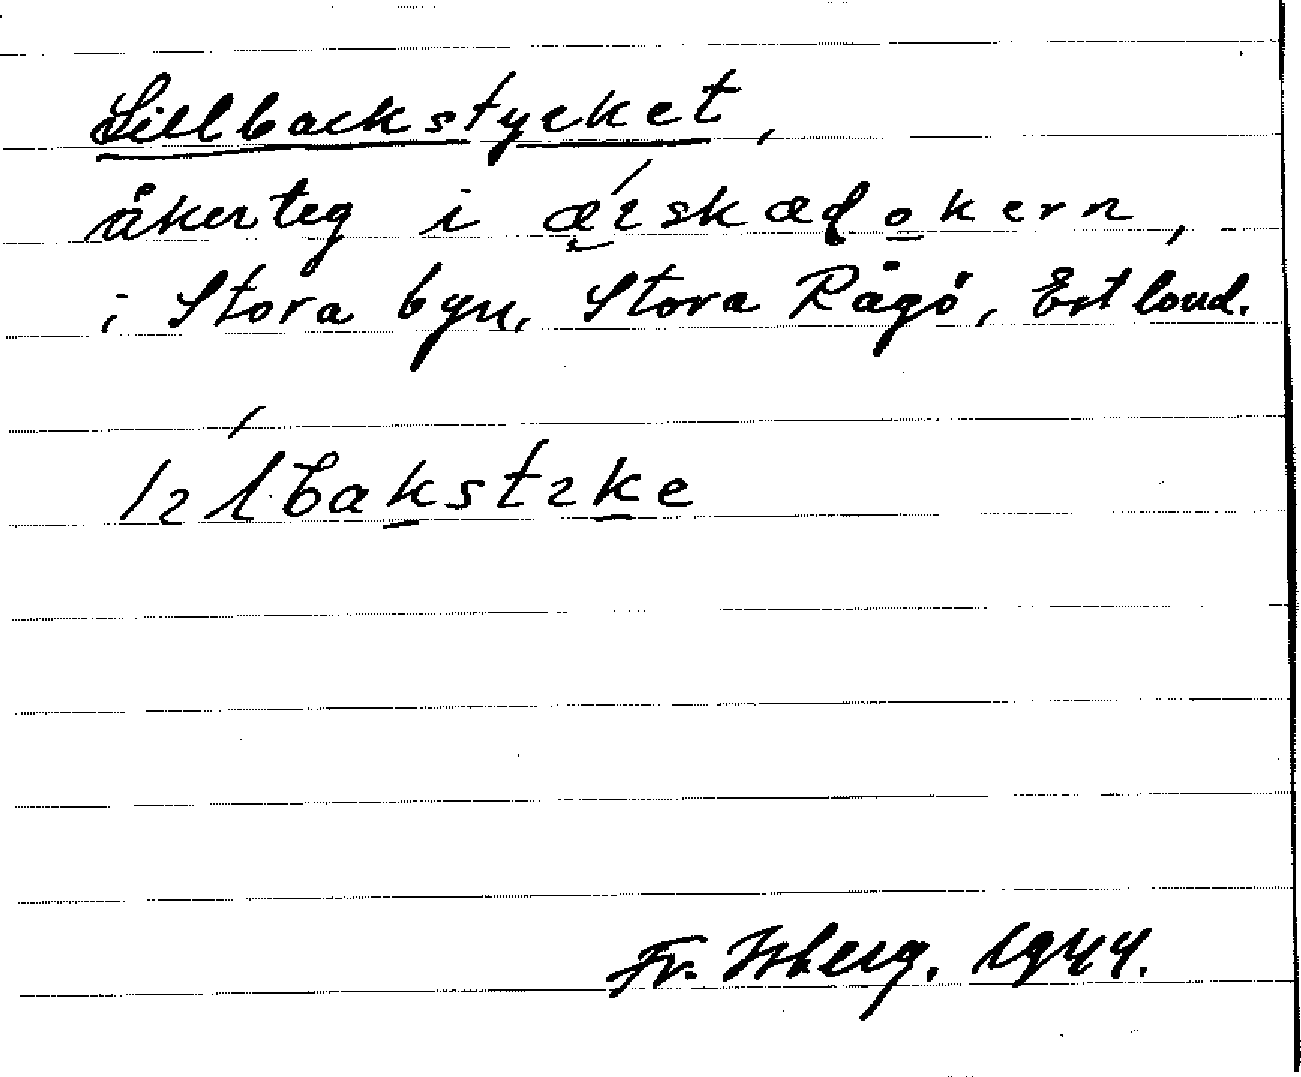 Sillbackstycket,
åkerteg i ærskæḍo̲kern,
i Stora byn, Stora Rågö, Estland.
sɩlbak̲stɩk̲e
Fr. Isberg. 1944.